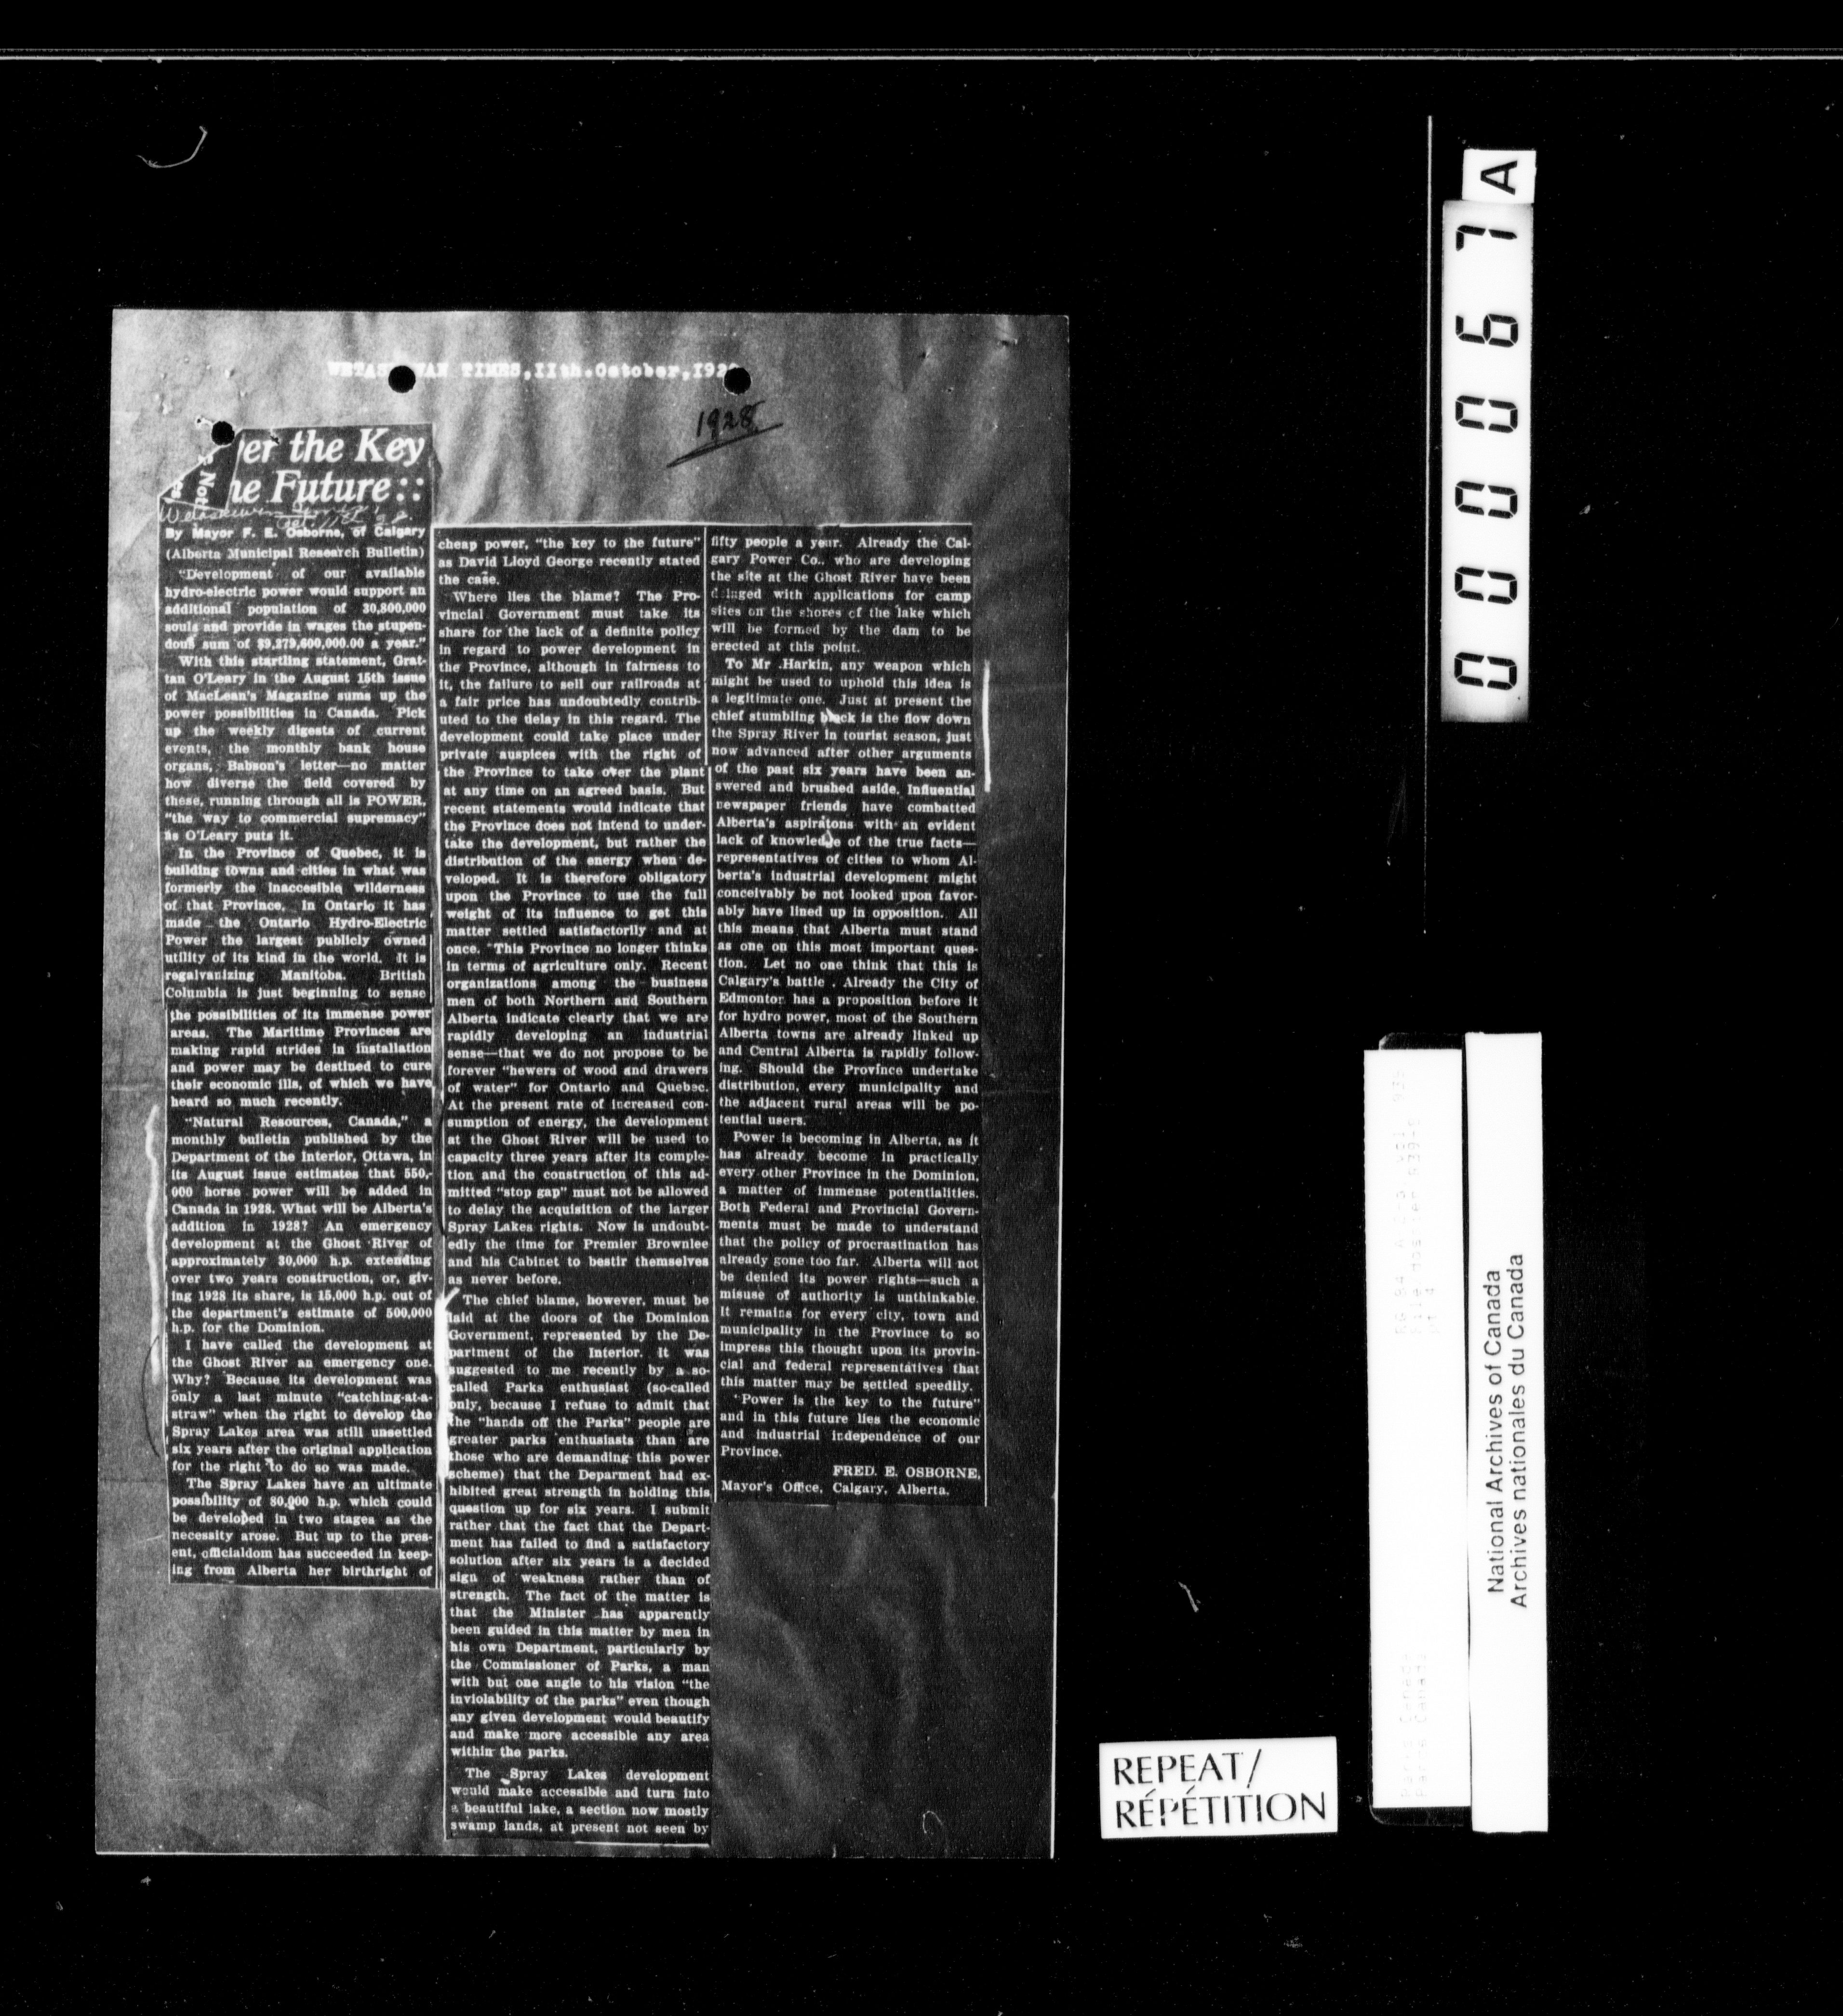 TIMES,11th.October,192
1928
er the Key
e Future::
By Mayor F. E. Osborne, of Calgary
(Alberta Municipal Research Bulletin)
"Development of our available
hydro-electric power would support an
additional population of 30,800,000
souls and provide in wages the stupen-
dous sum of $9,279,600,000.00 a year."
With this startling statement, Grat-
tan O'Leary in the August 15th issue
of MacLean's Magazine sums up the
power possibilities in Canada. Pick
up the weekly digests of current
events, the monthly bank house
organs, Babson's letter—no matter
how diverse the field covered by
these, running through all is POWER,
"the way to commercial supremacy"
as O'Leary puts it.
In the Province of Quebec, it is
building towns and cities in what was
formerly the inaccesible wilderness
of that Province. In Ontario it has
made the Ontario Hydro-Electric
Power the largest publicly owned
utility of its kind in the world. It is
regalvanizing Manitoba. British
Columbia is just beginning to sense
the possibilities of its immense power
areas. The Maritime Provinces are
making rapid strides in installation
and power may be destined to cure
their economic ills, of which we have
heard so much recently.
"Natural Resources, Canada," a
monthly bulletin published by the
Department of the Interior, Ottawa, in
its August issue estimates that 550,-
000 horse power will be added in
Canada in 1928. What will be Alberta's
addition in 1928? An emergency
development at the Ghost River of
approximately 30,000 h.p. extending
over two years construction, or, giv-
ing 1928 its share, is 15,000 h.p. out of
the department's estimate of 500,000
h.p. for the Dominion.
I have called the development at
the Ghost River an emergency one.
Why? Because its development was
only a last minute "catching-at-a-
straw" when the right to develop the
Spray Lakes area was still unsettled
six years after the original application
for the right to do so was made.
The Spray Lakes have an ultimate
possibility of 80,000 h.p. which could
be developed in two stages as the
necessity arose. But up to the pres-
ent, officialdom has succeeded in keep-
ing from Alberta her birthright of
cheap power, "the key to the future"
as David Lloyd George recently stated
the case.
Where lies the blame? The Pro-
vincial Government must take its
share for the lack of a definite policy
in regard to power development in
the Province, although in fairness to
it, the failure to sell our railroads at
a fair price has undoubtedly contrib-
uted to the delay in this regard. The
development could take place under
private auspices with the right of
the Province to take over the plant
at any time on an agreed basis. But
recent statements would indicate that
the Province does not intend to under-
take the development, but rather the
distribution of the energy when de-
veloped. It is therefore obligatory
upon the Province to use the full
weight of its influence to get this
matter settled satisfactorily and at
once. This Province no longer thinks
in terms of agriculture only. Recent
organizations among the business
men of both Northern and Southern
Alberta indicate clearly that we are
rapidly developing an industrial
sense—that we do not propose to be
forever "hewers of wood and drawers
of water" for Ontario and Quebec.
At the present rate of increased con-
sumption of energy, the development
at the Ghost River will be used to
capacity three years after its comple-
tion and the construction of this ad-
mitted "stop gap" must not be allowed
to delay the acquisition of the larger
Spray Lakes rights. Now is undoubt-
edly the time for Premier Brownlee
and his Cabinet to bestir themselves
as never before.
The chief blame, however, must be
laid at the doors of the Dominion
Government, represented by the De-
partment of the Interior. It was
suggested to me recently by a so-
called Parks enthusiast (so-called
only, because I refuse to admit that
the "hands off the Parks" people are
greater parks enthusiasts than are
those who are demanding this power
scheme) that the Deparment had ex-
hibited great strength in holding this
question up for six years. I submit
rather that the fact that the Depart-
ment has failed to find a satisfactory
solution after six years is a decided
sign of weakness rather than of
strength. The fact of the matter is
that the Minister has apparently
been guided in this matter by men in
his own Department, particularly by
the Commissioner of Parks, a man
with but one angle to his vision "the
inviolability of the parks" even though
any given development would beautify
and make more accessible any area
within the parks.
The Spray Lakes development
would make accessible and turn into
a beautiful lake, a section now mostly
swamp lands, at present not seen by
fifty people a year. Already the Cal-
gary Power Co., who are developing
the site at the Ghost River have been
deluged with applications for camp
sites on the shores of the lake which
will be formed by the dam to be
erected at this point.
To Mr .Harkin, any weapon which
might be used to uphold this idea is
a legitimate one. Just at present the
chief stumbling block is the flow down
the Spray River in tourist season, just
now advanced after other arguments
of the past six years have been an-
swered and brushed aside. Influential
newspaper friends have combatted
Alberta's aspiratons with an evident
lack of knowledge of the true facts—
representatives of cities to whom Al-
berta's industrial development might
conceivably be not looked upon favor-
ably have lined up in opposition. All
this means that Alberta must stand
as one on this most important ques-
tion. Let no one think that this is
Calgary's battle . Already the City of
Edmonton has a proposition before it
for hydro power, most of the Southern
Alberta towns are already linked up
and Central Alberta is rapidly follow-
ing. Should the Province undertake
distribution, every municipality and
the adjacent rural areas will be po-
tential users.
Power is becoming in Alberta, as it
has already become in practically
every other Province in the Dominion,
a matter of immense potentialities.
Both Federal and Provincial Govern-
ments must be made to understand
that the policy of procrastination has
already gone too far. Alberta will not
be denied its power rights—such a
misuse of authority is unthinkable.
It remains for every city, town and
municipality in the Province to so
impress this thought upon its provin-
cial and federal representatives that
this matter may be settled speedily.
"Power is the key to the future"
and in this future lies the economic
and industrial independence of our
Province.
FRED. E. OSBORNE,
Mayor's Office, Calgary, Alberta.
REPEAT/
RÉPÉTITION
000067A
National Archives of Canada
Archives nationales du Canada